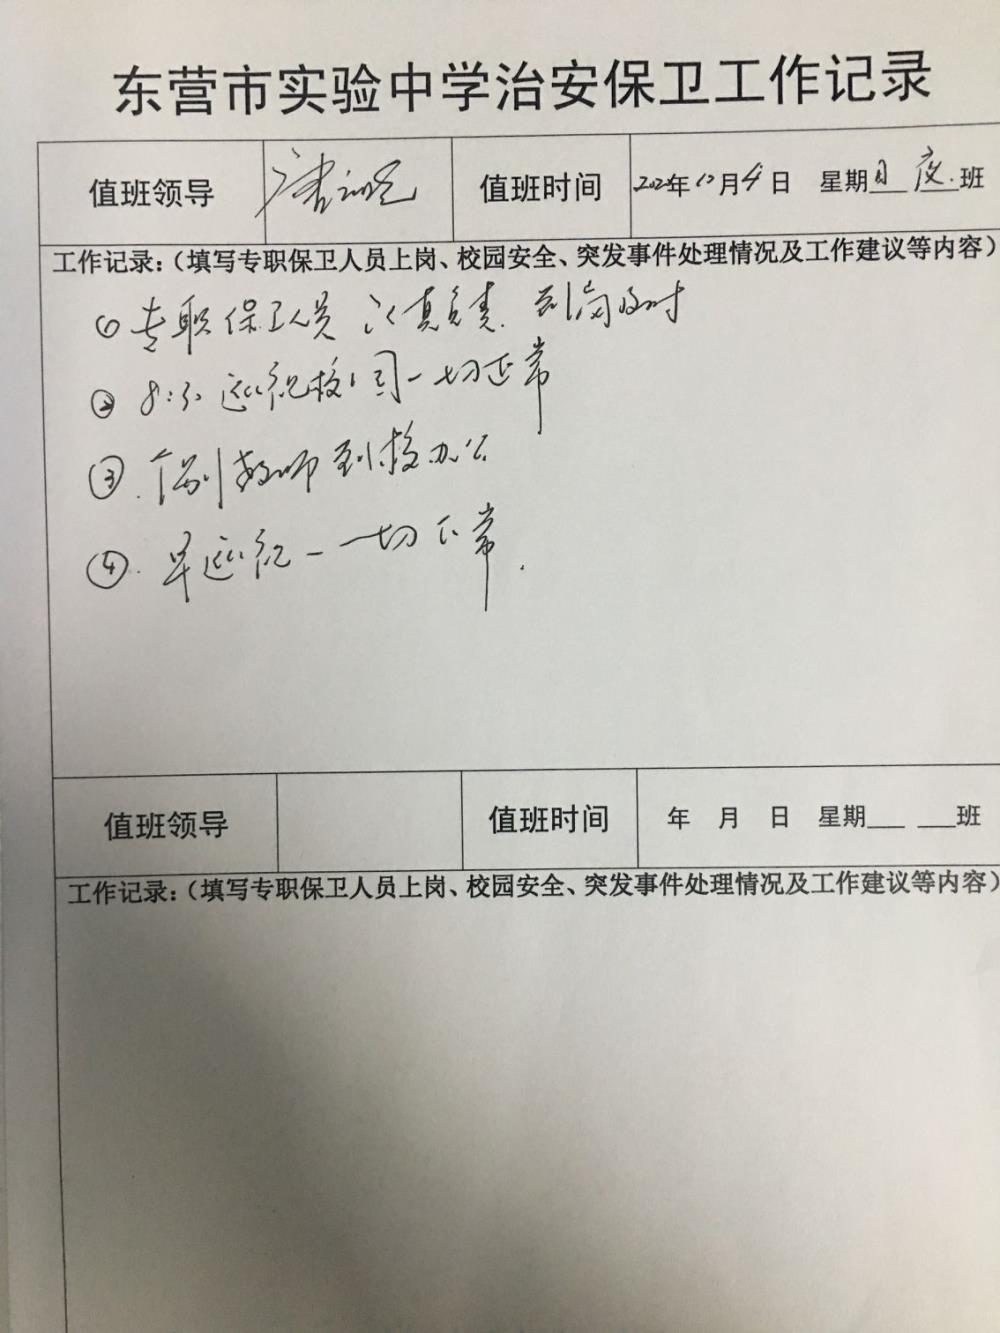 东营市实验中学治安保卫工作记录
值班领导 值班时间 2020年10月4日 星期日 夜班
工作记录：（填写专职保卫人员上岗、校园安全、突发事件处理情况及工作建议等内容）
① 专职保卫人员认真负责.到岗及时
② 8:30 巡视校园一切正常
③. 个别教师到校办公
④. 早巡视一一切正常.
值班领导 值班时间 年 月 日 星期___ ___班
工作记录：（填写专职保卫人员上岗、校园安全、突发事件处理情况及工作建议等内容）